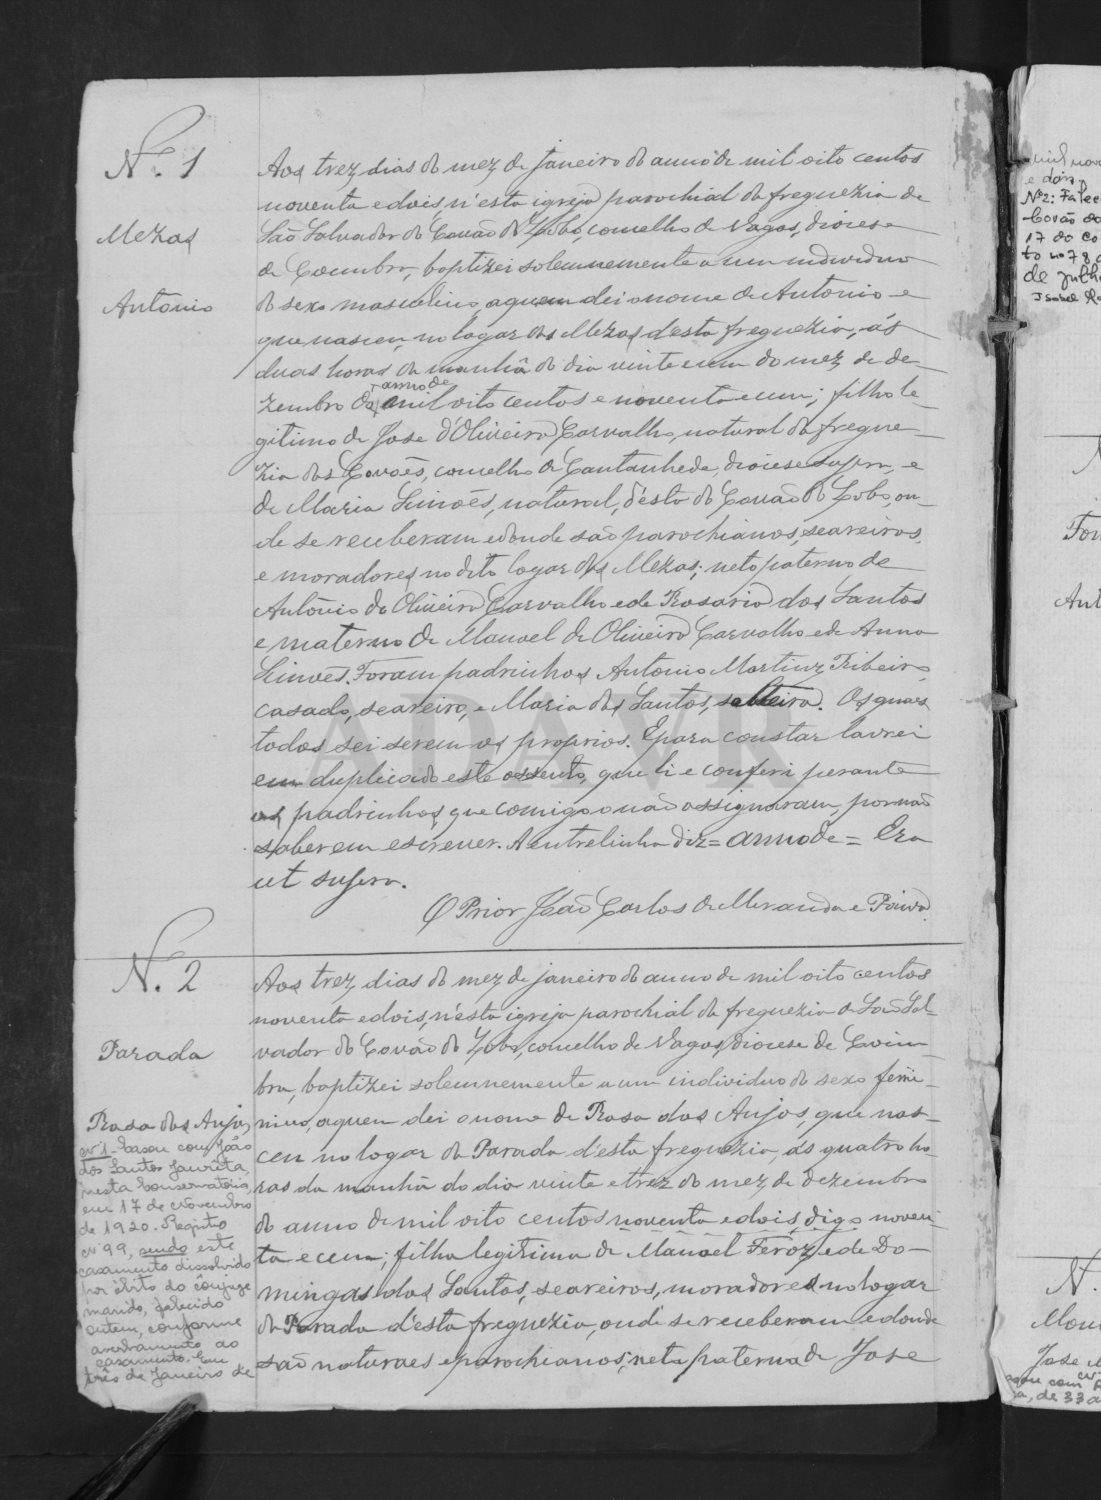 Nº. 1
Mezas
Antonio
Aos trez dias do mez de Janeiro do anno de mil oito centos
noventa e dois, n'esta igreja parochial da freguezia de
São Salvador do Covão do Lobo, concelho de Vagos, diocese
de Coimbra, baptizei solemnemente a um individuo
do sexo masculino, a quem dei o nome de Antonio e
que nasceu no logar das Mezas d'esta freguezia, ás
duas horas da manhã do dia vinte e um do mez de de-
zembro do anno de mil oito centos e noventa e um; filho le-
gitimo de Jose d'Oliveira Carvalho, natural da fregue-
zia dos Covoẽs, concelho de Cantanhede, diocese supra, e
de Maria Simoẽs, natural, d'esta do Covão do Lobo, on-
de se receberam e donde são parochianos, seareiros,
e moradores no dito logar das Mezas; neto paterno de
Antonio de Oliveira Carvalho e de Rosaria dos Santos
e materno de Manoel de Oliveira Carvalho e de Anna
Simoẽs. Foram padrinhos Antonio Martins Ribeiro
casado, seareiro, e Maria dos Santos, solteira. Os quaes
todos sei serem os proprios. E para constar lavrei
em duplicado este assento, que li e conferi perante
os padrinhos que comigo o não assignaram, por não
saberem escrever. A entrelinha diz = anno de = Era
ut supra.
O Prior João Carlos de Miranda e Paiva.
N. 2
Parada
Rosa dos Anjos
nº 1 - Casou com João
dos Santos
nesta Conservatória,
em 17 de Novembro
de 1920. Registo
nº 99, sendo este
casamento dissolvido
por óbito do cônjuge
marido, falecido
ontem, conforme
averbamento ao
casamento. Em
três de Janeiro de
Aos trez dias do mez de janeiro do anno de mil oito centos
noventa e dois, n'esta igreja parochial da freguezia de São Sal-
vador do Covão do Lobo, concelho de Vagos, diocese de Coim-
bra, baptizei solemnemente a um individuo do sexo femi-
nino, a quem dei o nome de Rosa dos Anjos, que nas-
ceu no logar da Parada d'esta freguezia, ás quatro ho-
ras da manhã do dia vinte e trez do mez de dezembro
do anno de mil oito centos noventa e dois, digo noven-
ta e um; filha legitima de Manoel Feroz e de Do-
mingas dos Santos, seareiros, moradores no logar
da Parada d'esta freguezia, onde se receberam e donde
são naturaes e parochianos; neta paterna de Jose
Nº2: Falec
Covão do
17 do co
to nº 78
de julh
Isabel
ADAVR
Jose
de 33 a